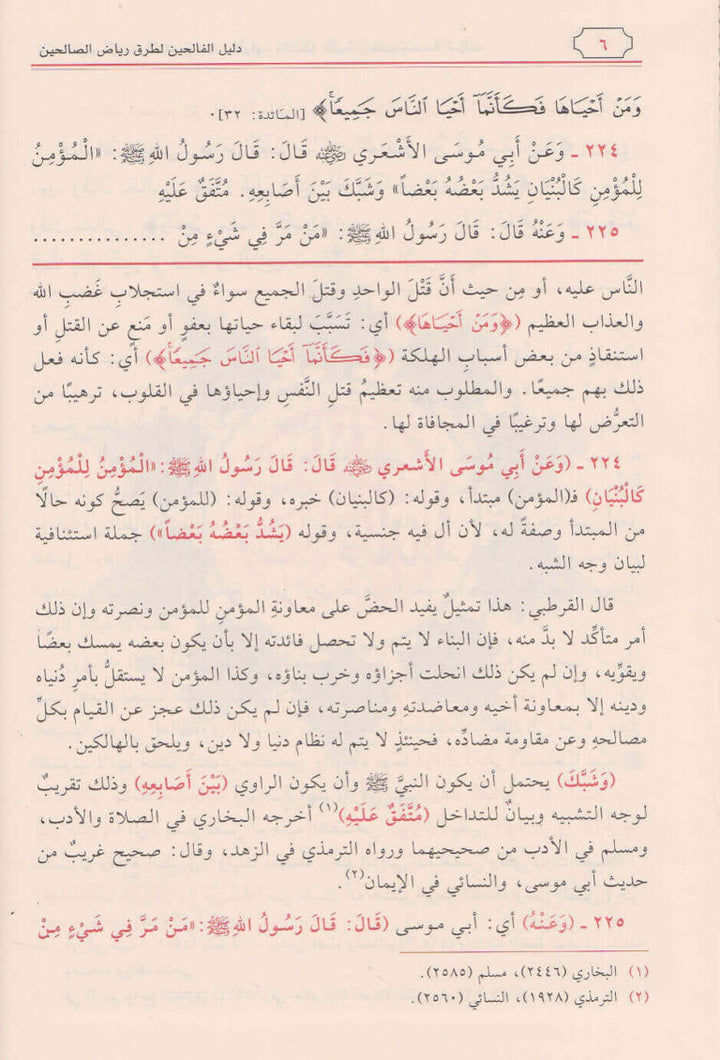 ٦
دليل الفالحين لطرق رياض الصالحين
وَمَنْ أَحْيَاهَا فَكَأَنَّمَآ أَحْيَا النَّاسَ جَمِيعًا﴾ [المائدة: ٣٢].
٢٢٤ ـ وَعَنْ أَبِي مُوسَى الأَشْعَرِي رضي الله عنه قَالَ: قَالَ رَسُولُ اللهِ ﷺ: «الْمُؤْمِنُ
لِلْمُؤْمِنِ كَالْبُنْيَانِ يَشُدُّ بَعْضُهُ بَعْضاً» وَشَبَّكَ بَيْنَ أَصَابِعِهِ. مُتَّفَقٌ عَلَيْهِ
٢٢٥ ـ وَعَنْهُ قَالَ: قَالَ رَسُولُ اللهِ ﷺ: «مَنْ مَرَّ فِي شَيْءٍ مِنْ ...............
النَّاس عليه، أو مِن حيث أَنَّ قَتْلَ الواحدِ وقتلَ الجميع سواءٌ في استجلابِ غَضبِ الله
والعذاب العظيم (﴿وَمَنْ أَحْيَاهَا﴾) أي: تَسَبَّبَ لبقاء حياتها بعفوٍ أو مَنعٍ عن القتلِ أو
استنقاذٍ من بعض أسبابِ الهلكة (﴿فَكَأَنَّمَآ أَحْيَا النَّاسَ جَمِيعًا﴾) أي: كأنه فعل
ذلك بهم جميعًا. والمطلوب منه تعظيمُ قتلِ النَّفسِ وإحياؤها في القلوب، ترهيبًا من
التعرُّض لها وترغيبًا في المجافاة لها.
٢٢٤ ـ (وَعَنْ أَبِي مُوسَى الأَشعري رضي الله عنه قَالَ: قَالَ رَسُولُ اللهِ ﷺ: «الْمُؤْمِنُ لِلْمُؤْمِنِ
كَالْبُنْيَانِ) فـ(المؤمن) مبتدأ، وقوله: (كالبنيان) خبره، وقوله: (للمؤمن) يَصحُّ كونه حالًا
من المبتدأ وصفةً له، لأن أل فيه جنسية، وقوله (يَشُدُّ بَعْضُهُ بَعْضاً») جملة استئنافية
لبيان وجه الشبه.
قال القرطبي: هذا تمثيلٌ يفيد الحضَّ على معاونةِ المؤمنِ للمؤمن ونصرته وإن ذلك
أمر متأكِّد لا بدَّ منه، فإن البناء لا يتم ولا تحصل فائدته إلا بأن يكون بعضه يمسك بعضًا
ويقوِّيه، وإن لم يكن ذلك انحلت أجزاؤه وخرب بناؤه، وكذا المؤمن لا يستقلُّ بأمرِ دُنياه
ودينه إلا بمعاونة أخيه ومعاضدتهِ ومناصرته، فإن لم يكن ذلك عجز عن القيام بكلِّ
مصالحهِ وعن مقاومة مضادِّه، فحينئذٍ لا يتم له نظام دنيا ولا دين، ويلحق بالهالكين.
(وَشَبَّكَ) يحتمل أن يكون النبيَّ ﷺ وأن يكون الراوي (بَيْنَ أَصَابِعِهِ) وذلك تقريبٌ
لوجه التشبيه وبيانٌ للتداخل (مُتَّفَقٌ عَلَيْهِ)(١) أخرجه البخاري في الصلاة والأدب،
ومسلم في الأدب من صحيحيهما ورواه الترمذي في الزهد، وقال: صحيح غريبٌ من
حديث أبي موسى، والنسائي في الإيمان(٢).
٢٢٥ ـ (وَعَنْهُ) أي: أبي موسى (قَالَ: قَالَ رَسُولُ اللهِ ﷺ: «مَنْ مَرَّ فِي شَيْءٍ مِنْ
(١) البخاري (٢٤٤٦)، مسلم (٢٥٨٥).
(٢) الترمذي (١٩٢٨)، النسائي (٢٥٦٠).